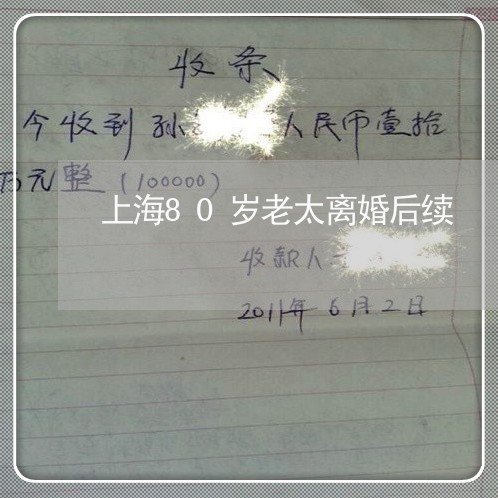 收条
今收到孙人民币壹拾
万元整(100000)
上海80岁老太离婚后续
收款人
2011年6月2日